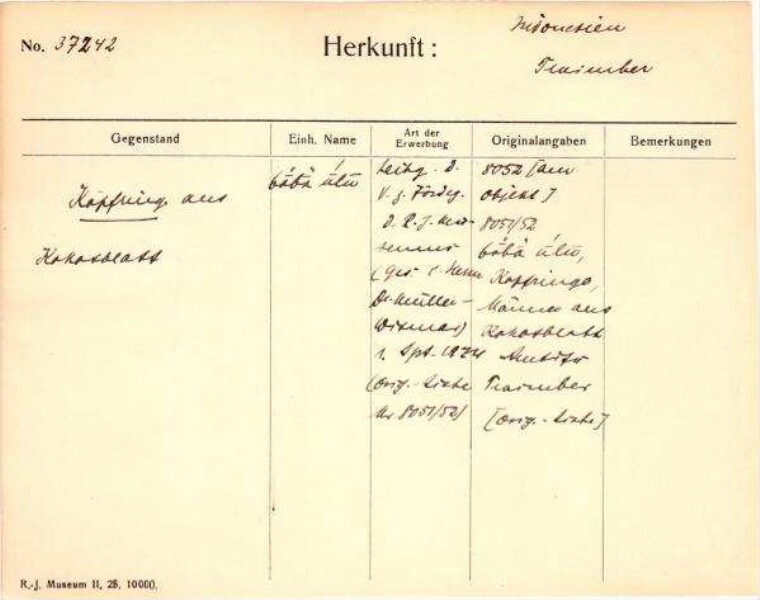 No. 37242
Herkunft:
Indonesien
Tanimber
Gegenstand
Einh. Name
Art der Erwerbung
Originalangaben
Bemerkungen
Kopfring aus
Kokosblatt
bôbâ úlu
Leihg. d.
V. z. Förderg.
d. R. J. Mu-
seums
(Ges. v. Herrn
Dr. Müller-
Wismar)
1. Spt. 1924
(Orig.-Liste
Nr 8051/52)
8052 [am
Objekt]
8051/52
bôbâ úlu,
Kopfringe,
Männer aus
Kokosblatt
Tanimber
[Orig.-Liste]
R.-J. Museum II, 25, 10000.